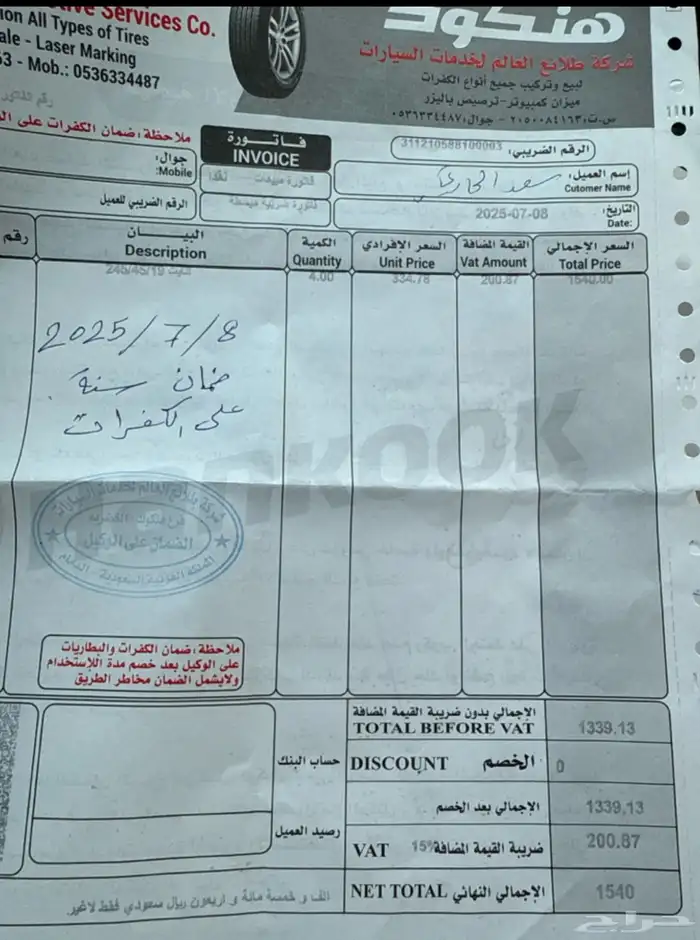 tive Services Co.
ion All Types of Tires
ale - Laser Marking
53 - Mob.: 0536334487
هنكوك
شركة طلائع العالم لخدمات السيارات
لبيع وتركيب جميع أنواع الكفرات
ميزان كمبيوتر - ترصيص بالليزر
س.ت: ٢٠٥٠٠٨٤١٦٣ - جوال: ٠٥٣٦٣٣٤٤٨٧
ملاحظة: ضمان الكفرات على
فاتورة
INVOICE
الرقم الضريبي: 311210588100003
جوال:
Mobile:
فاتورة مبيعات نقدا
إسم العميل: سعد الحارثي
Cutomer Name
الرقم الضريبي للعميل
فاتورة ضريبية مبسطة
التاريخ: 2025-07-08
Date:
رقم
البيـــان
Description
الكمية
Quantity
السعر الإفرادي
Unit Price
القيمة المضافة
Vat Amount
السعر الإجمالي
Total Price
245/45/19 4.00 334.78 200.87 1540.00
2025/7/8
ضمان سنة
على الكفرات
شركة طلائع العالم لخدمات السيارات
الضمان على الوكيل
المملكة العربية السعودية - الدمام
ملاحظة: ضمان الكفرات والبطاريات
على الوكيل بعد خصم مدة الإستخدام
ولايشمل الضمان مخاطر الطريق
الإجمالي بدون ضريبة القيمة المضافة
TOTAL BEFORE VAT 1339.13
حساب البنك
DISCOUNT الخصم 0
الإجمالي بعد الخصم 1339.13
رصيد العميل
VAT 15% ضريبة القيمة المضافة 200.87
NET TOTAL الإجمالي النهائي 1540
الف و خمسة مائة و اربعون ريال سعودي فقط لاغير.
حراج